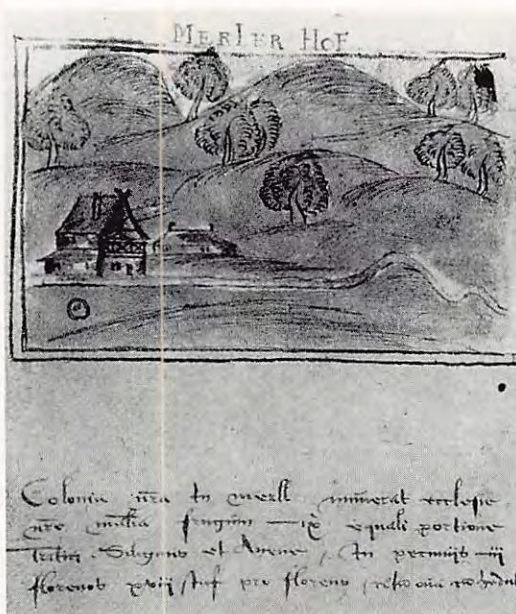 MERLER HOF
Colonia nra in merll numerat ecclesie
nre maltia frugum — ix equali portione
Tritici Siliginis et Avene, In pecunijs — iij
florenos xviij stuf pro floreno,